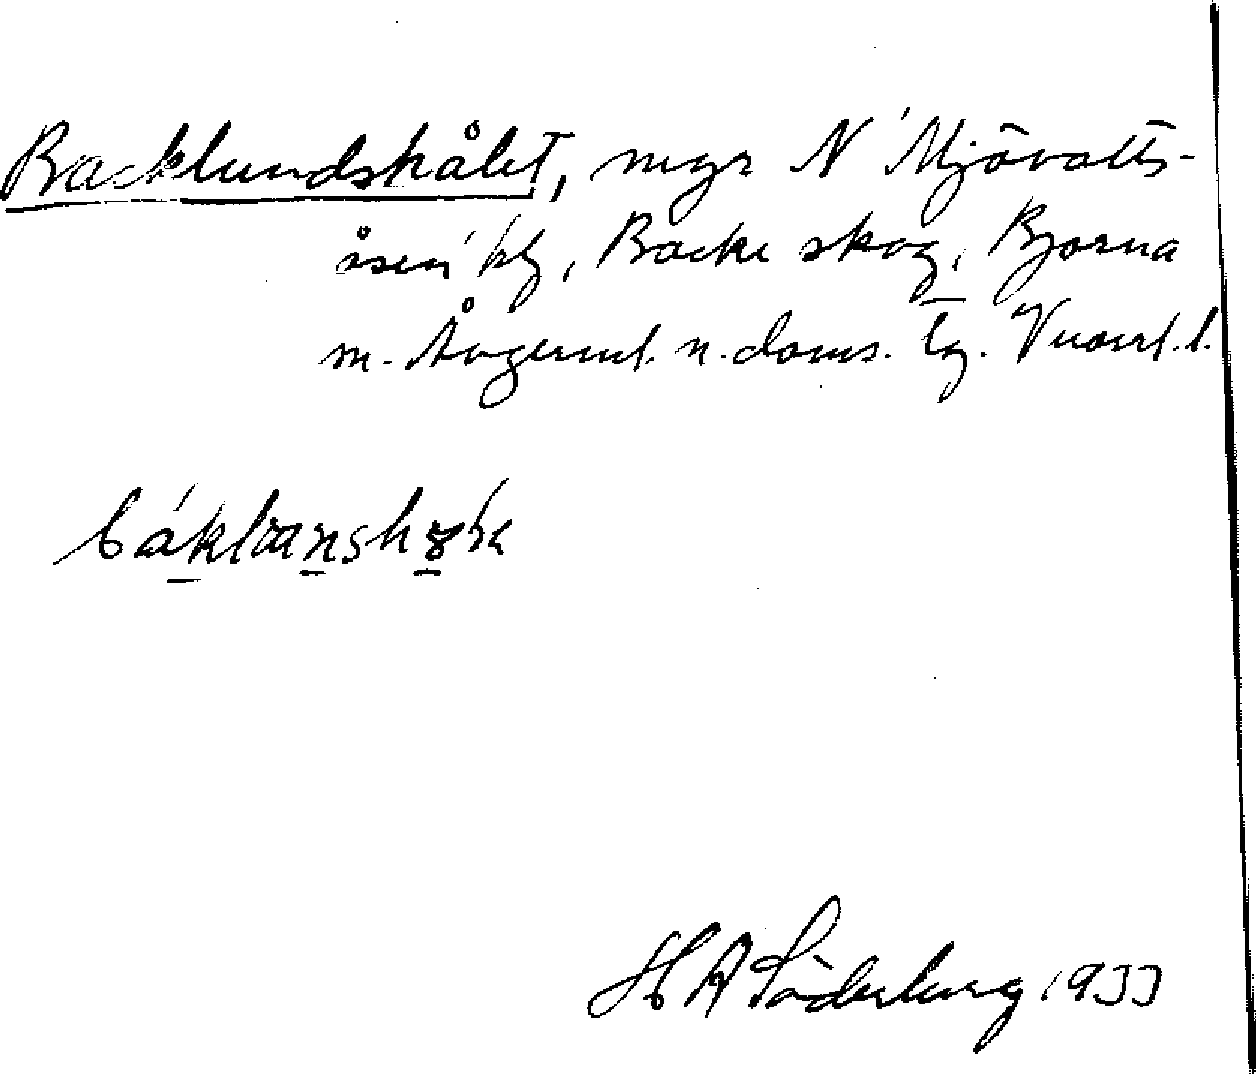 Backlundshålet, myr N Mjövatts-
åsen, Backe skog, Björna
m. Ångerml. n. doms. Vnorrl. l.
H A Söderberg 1933